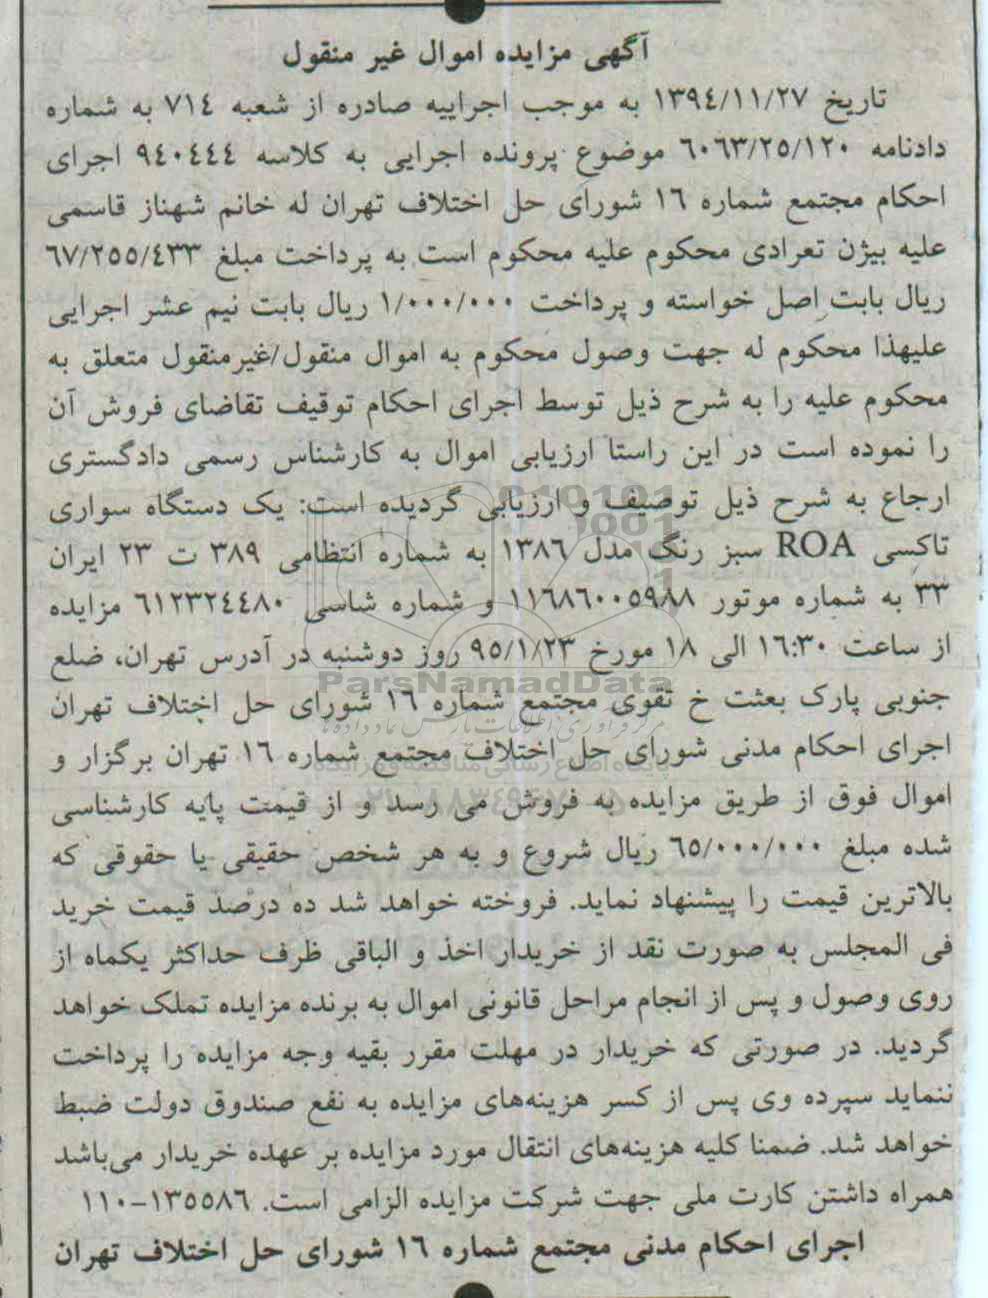 آگهی مزایده اموال غیر منقول
تاریخ ۱۳۹٤/۱۱/۲۷ به موجب اجراییه صادره از شعبه ۷۱٤ به شماره
دادنامه ٦۰٦۳/۲۵/۱۲۰ موضوع پرونده اجرایی به کلاسه ۹٤۰٤٤٤ اجرای
احکام مجتمع شماره ۱٦ شورای حل اختلاف تهران له خانم شهناز قاسمی
علیه بیژن تعرادی محکوم علیه محکوم است به پرداخت مبلغ ٦۷/۲۵۵/٤۳۳
ریال بابت اصل خواسته و پرداخت ۱/۰۰۰/۰۰۰ ریال بابت نیم عشر اجرایی
علیهذا محکوم له جهت وصول محکوم به اموال منقول/غیرمنقول متعلق به
محکوم علیه را به شرح ذیل توسط اجرای احکام توقیف تقاضای فروش آن
را نموده است در این راستا ارزیابی اموال به کارشناس رسمی دادگستری
ارجاع به شرح ذیل توصیف و ارزیابی گردیده است: یک دستگاه سواری
تاکسی ROA سبز رنگ مدل ۱۳۸٦ به شماره انتظامی ۳۸۹ ت ۲۳ ایران
۳۳ به شماره موتور ۱۱٦۸٦۰۰۵۹۸۸ و شماره شاسی ٦۱۲۳۲٤٤۸۰ مزایده
از ساعت ۱٦:۳۰ الی ۱۸ مورخ ۹۵/۱/۲۳ روز دوشنبه در آدرس تهران، ضلع
جنوبی پارک بعثت خ تقوی مجتمع شماره ۱٦ شورای حل اختلاف تهران
اجرای احکام مدنی شورای حل اختلاف مجتمع شماره ۱٦ تهران برگزار و
اموال فوق از طریق مزایده به فروش می رسد و از قیمت پایه کارشناسی
شده مبلغ ٦۵/۰۰۰/۰۰۰ ریال شروع و به هر شخص حقیقی یا حقوقی که
بالاترین قیمت را پیشنهاد نماید. فروخته خواهد شد ده درصد قیمت خرید
فی المجلس به صورت نقد از خریدار اخذ و الباقی ظرف حداکثر یکماه از
روی وصول و پس از انجام مراحل قانونی اموال به برنده مزایده تملک خواهد
گردید. در صورتی که خریدار در مهلت مقرر بقیه وجه مزایده را پرداخت
ننماید سپرده وی پس از کسر هزینه‌های مزایده به نفع صندوق دولت ضبط
خواهد شد. ضمنا کلیه هزینه‌های انتقال مورد مزایده بر عهده خریدار می‌باشد
همراه داشتن کارت ملی جهت شرکت مزایده الزامی است. ۱۳۵۵۸٦-۱۱۰
اجرای احکام مدنی مجتمع شماره ۱٦ شورای حل اختلاف تهران
ParsNamadData